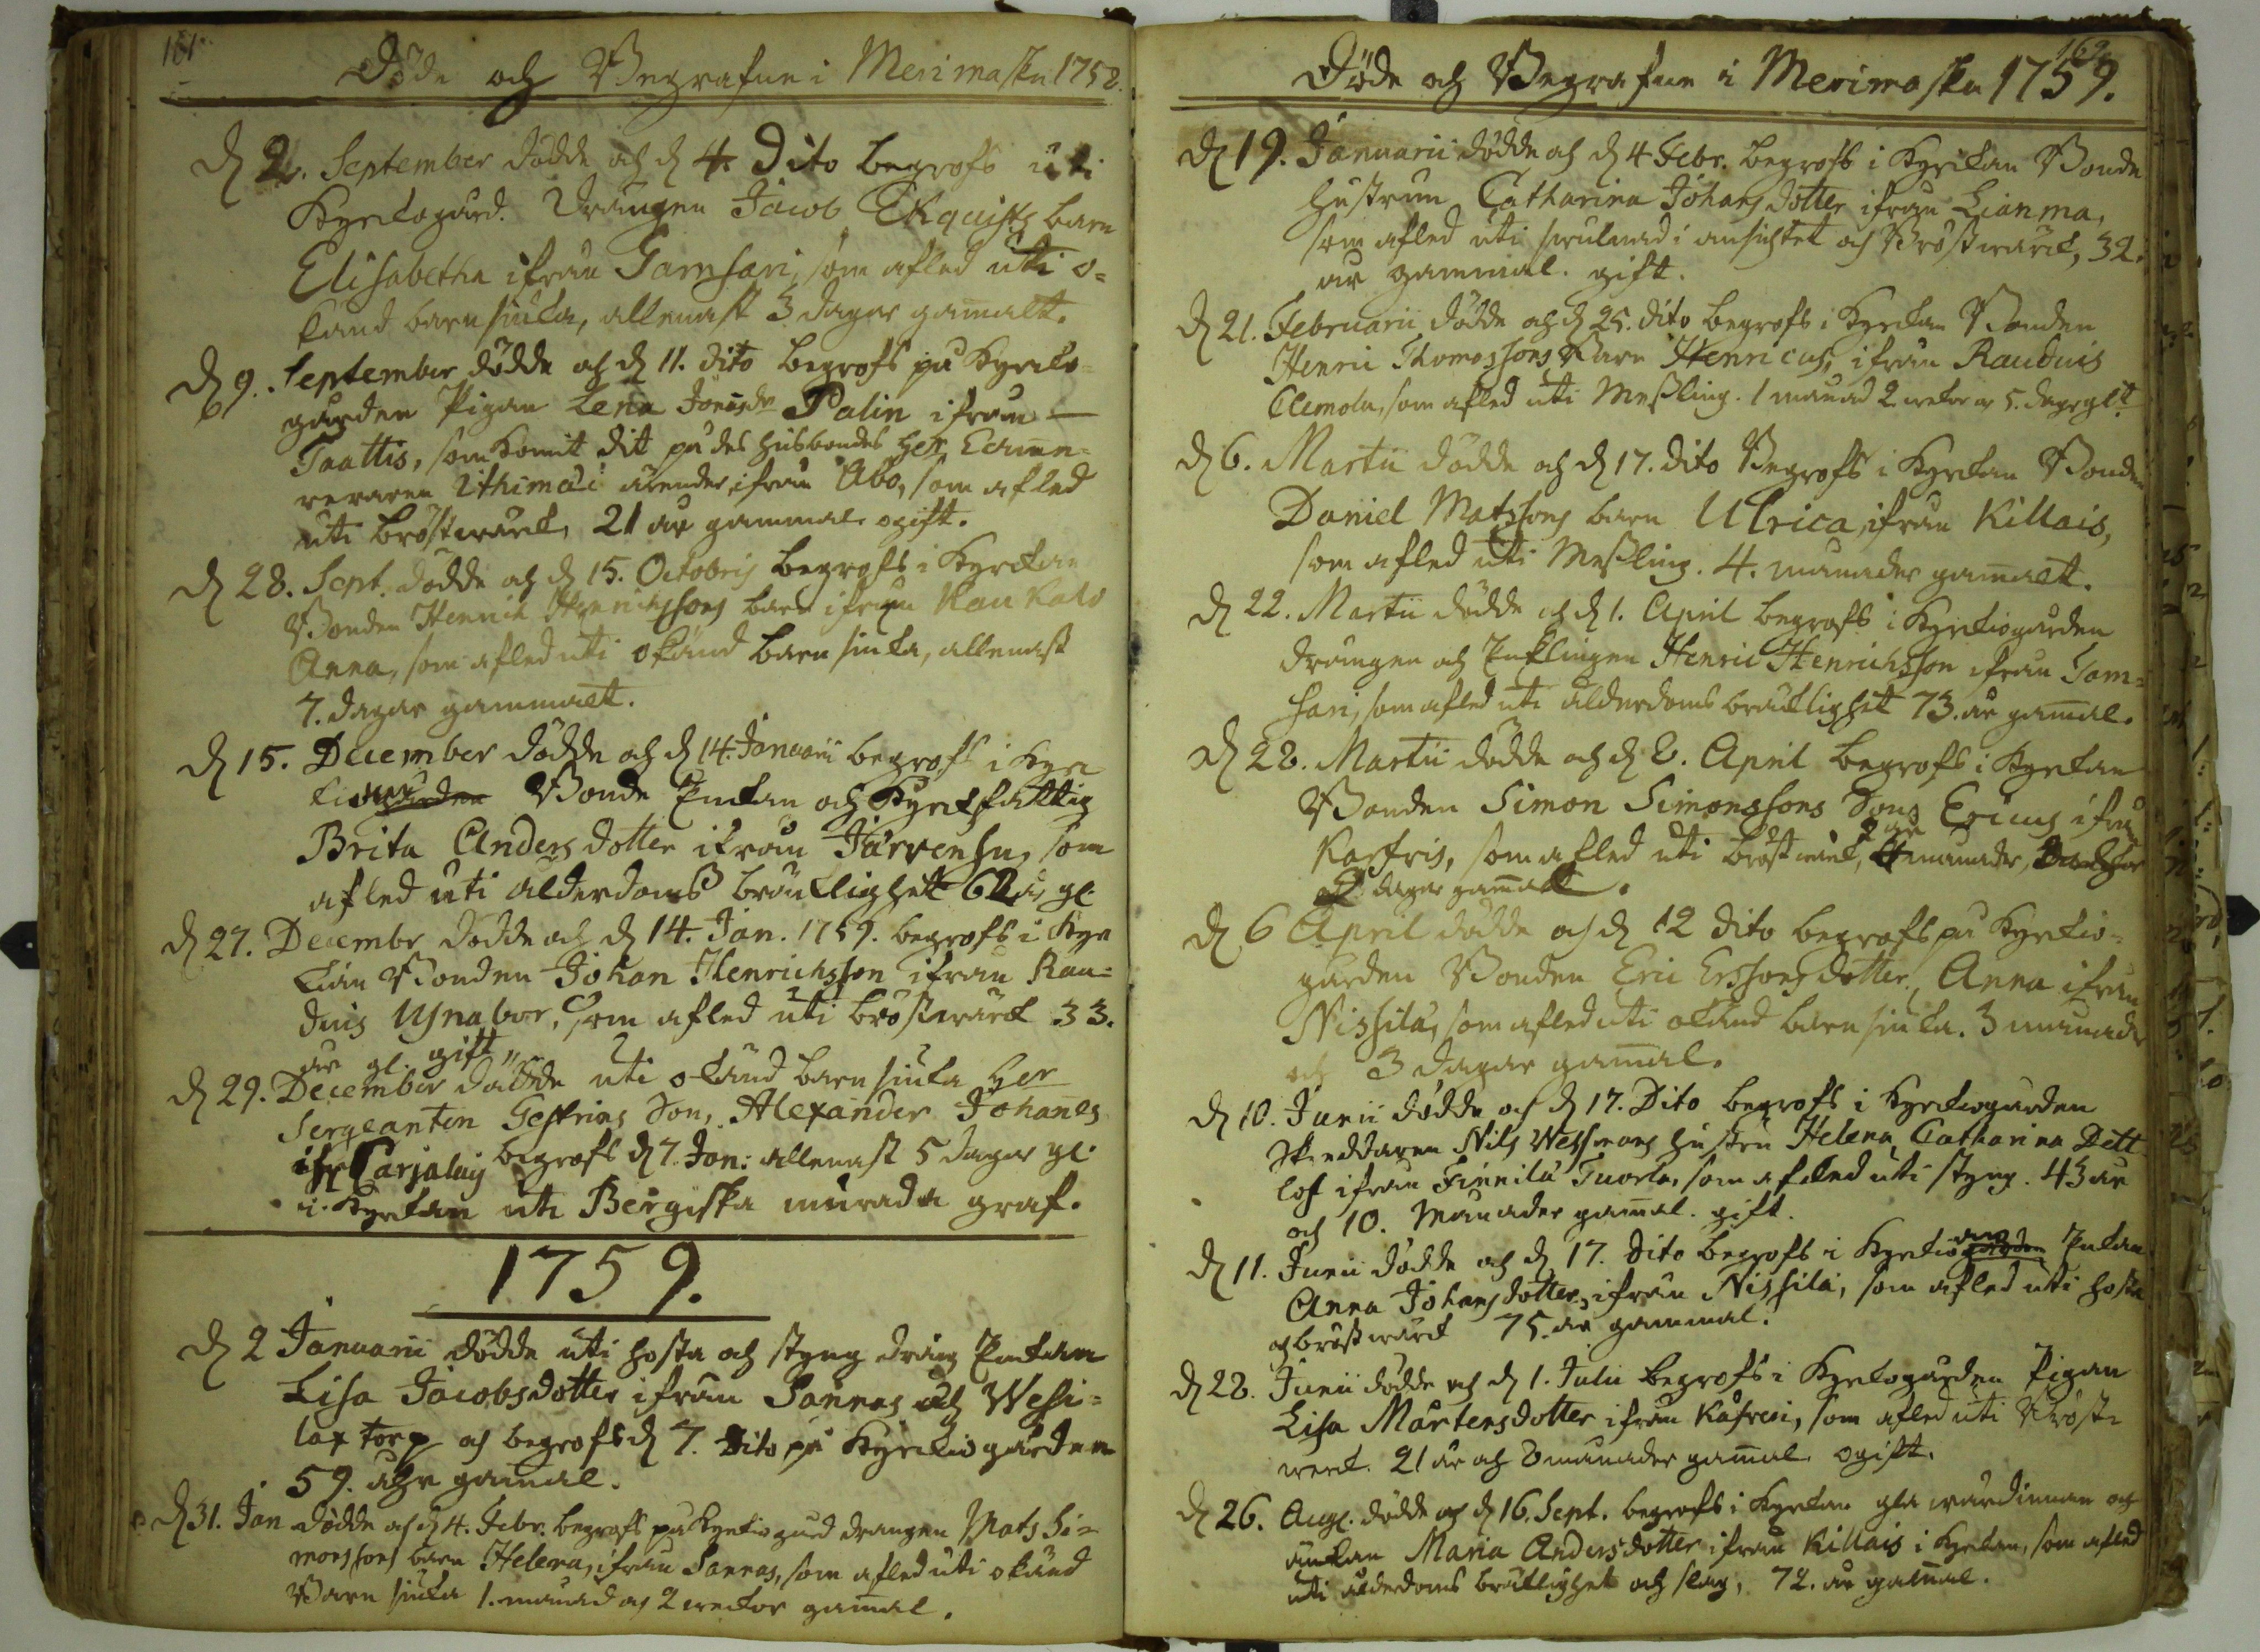 161.
Döde och Begrafne i Merimasku 1758.
D. 2. September dödde och d. 4. Dito begrofs uti
Kyrkogård. Drängen Jacob Ekquists barn
Elisabetha ifrån Tamsari, som afled uti o-
känd barnsiuka, allenast 3 dagar gamalt.
D. 9. September dödde och d. 11. dito begrofs på Kyrko-
gården Pigan Lena Jönsdr Palin ifrån
Taattis, som komit dit på des husbondes Herr
reraren Ithimæi ärender, ifrån Åbo, som afled
uti bröstwärck, 21 år gammal. ogift.
D. 28. Sept. dödde och d. 15. Octobris begrofs i Kyrckan
Bonden Henrik Henrichssons barn ifrån Kaukalo
Anna, som afled uti okänd barnsiuka, allenast
7. dagar gammalt.
D. 15. December dödde och d. 14. Januarii begrofs i Kyr
Bonde Enckan och Kyrckfattig
Brita Anders dotter ifrån Järvensu, som
afled uti ålderdoms bräcklighet 62 år gl.
D. 27. Decembr dödde och d. 14. Jan. 1759. begrofs i Kyr
kian Bonden Johan Henrichsson ifrån Rau-
duis Usnabor, som afled uti bröstwärck 33.
år gl. gift
D. 29. December dödde uti okänd barnsiuka Her
Sergeanten Gestrins Son, Alexander Johanes
ifr Carjalay begrofs d. 7. Jan: allenast 5 dagar gl.
i Kyrckan uti Bergiska murade graf.
1759.
D. 2 Januarii dödde uti hosta och styng dräng Enckan
Lisa Jacobsdotter ifrån Sannas och Wesi-
lax torp och begrofs d. 7. Dito på Kyrkiogården
59. åhr gamal.
D. 31. Jan dödde och d. 4. Febr. begrofs på Kyrkiogård drängen Mats Si-
monssons barn Helena, ifrån Sannas, som afled uti okänd
Barn siuka 1. månad och 2 weckor gamal.
162.
Döde och Begrafne i Merimasku 1759.
D. 19. Januarii dödde och d. 4 Febr. begrofs i Kyrckan Bonde
hustrun Catharina Johans dotter ifrån Lianma,
som afled uti swulnad i ansichtet och Bröstwärck, 32.
år gammal. gift.
D. 21. Februarii dödde och d. 25. dito begrofs i Kyrckan Bonden
Henric Thomassons Barn Henricus, ifrån Rauduis
Clemola, som afled uti Messling. 1 månad 2 weckor och 5. dagr glt.
D. 6. Martii dödde och d. 17. dito Begrofs i Kyrckan Bonden
Daniel Matssons barn Ulrica, ifrån Killais,
som afled uti Messling. 4. månader gamalt.
D. 22. Martii dödde och d. 1. April begrofs i Kyrckiogården
drängen och Enklingen Henric Henrichsson ifrån Tam-
sari, som afled uti ålderdoms bräcklighet 73. år gamal.
D. 28. Martii dödde och d. 8. April begrofs i Kyrckan
Bonden Simon Simonssons Son Ericus ifrån
Karfris, som afled uti bröstwärck, år månader,
dagar gamalt.
D. 6 April dödde och d. 12 dito begrofs på Kyrckio-
gården Bonden Eric Erssons dotter, Anna ifrån
Nissilä, som afled uti okänd barnsiuka. 3 månader
och 3 dagar gamal.
D. 10. Junii dödde och d. 17. Dito begrofs i Kyrckiogården
Skreddaren Nils Wessmans hustru Helena Catharina Dett
lof ifrån Finnilä Tuorla, som afled uti styng. 43 år
och 10. Månader gamal. gift.
D. 11. Junii dödde och d. 17. Dito begrofs i Kyrckio Enkan
Anna Johans dotter, ifrån Nissilä, som afled uti hosta
och bröstwärck 75. år gammal.
D. 28. Junii dödde och d. 1. Julii begrofs i Kyrkogården Pigan
Lisa Mårtensdotter ifrån Kåfreri, som afled uti Bröst-
werck. 21 år och 8 månader gamal. ogift.
D. 26. Aug. dödde och d. 16. Sept. begrofs i Kyrckan gla wärdinnan och
änkan Maria Andersdotter ifrån Killais i Kyrckan, som afled
uti ålderdoms bräcklighet och slag, 72. år gamal.